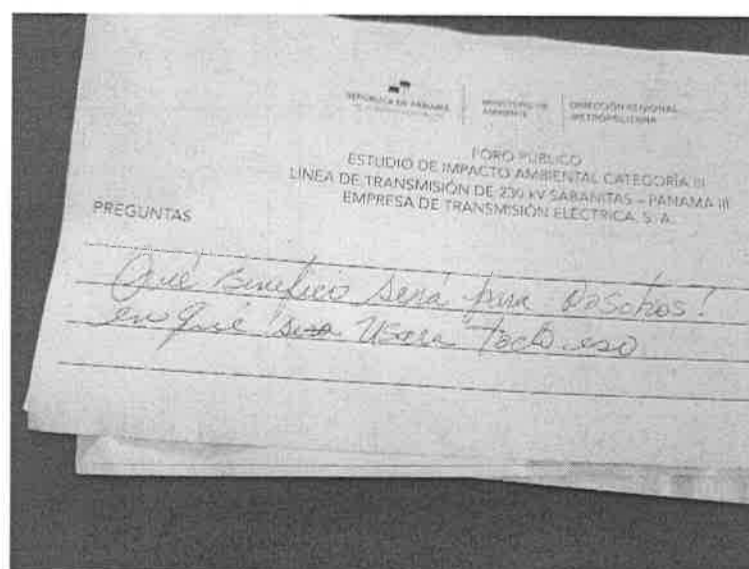 REPÚBLICA DE PANAMÁ
MINISTERIO DE
AMBIENTE
DIRECCIÓN REGIONAL
METROPOLITANA
FORO PÚBLICO
ESTUDIO DE IMPACTO AMBIENTAL CATEGORÍA III
LÍNEA DE TRANSMISIÓN DE 230 kV SABANITAS – PANAMA III
EMPRESA DE TRANSMISIÓN ELÉCTRICA, S. A.
PREGUNTAS
Qué Beneficio será para Nosotros!
en qué se Usara todo eso